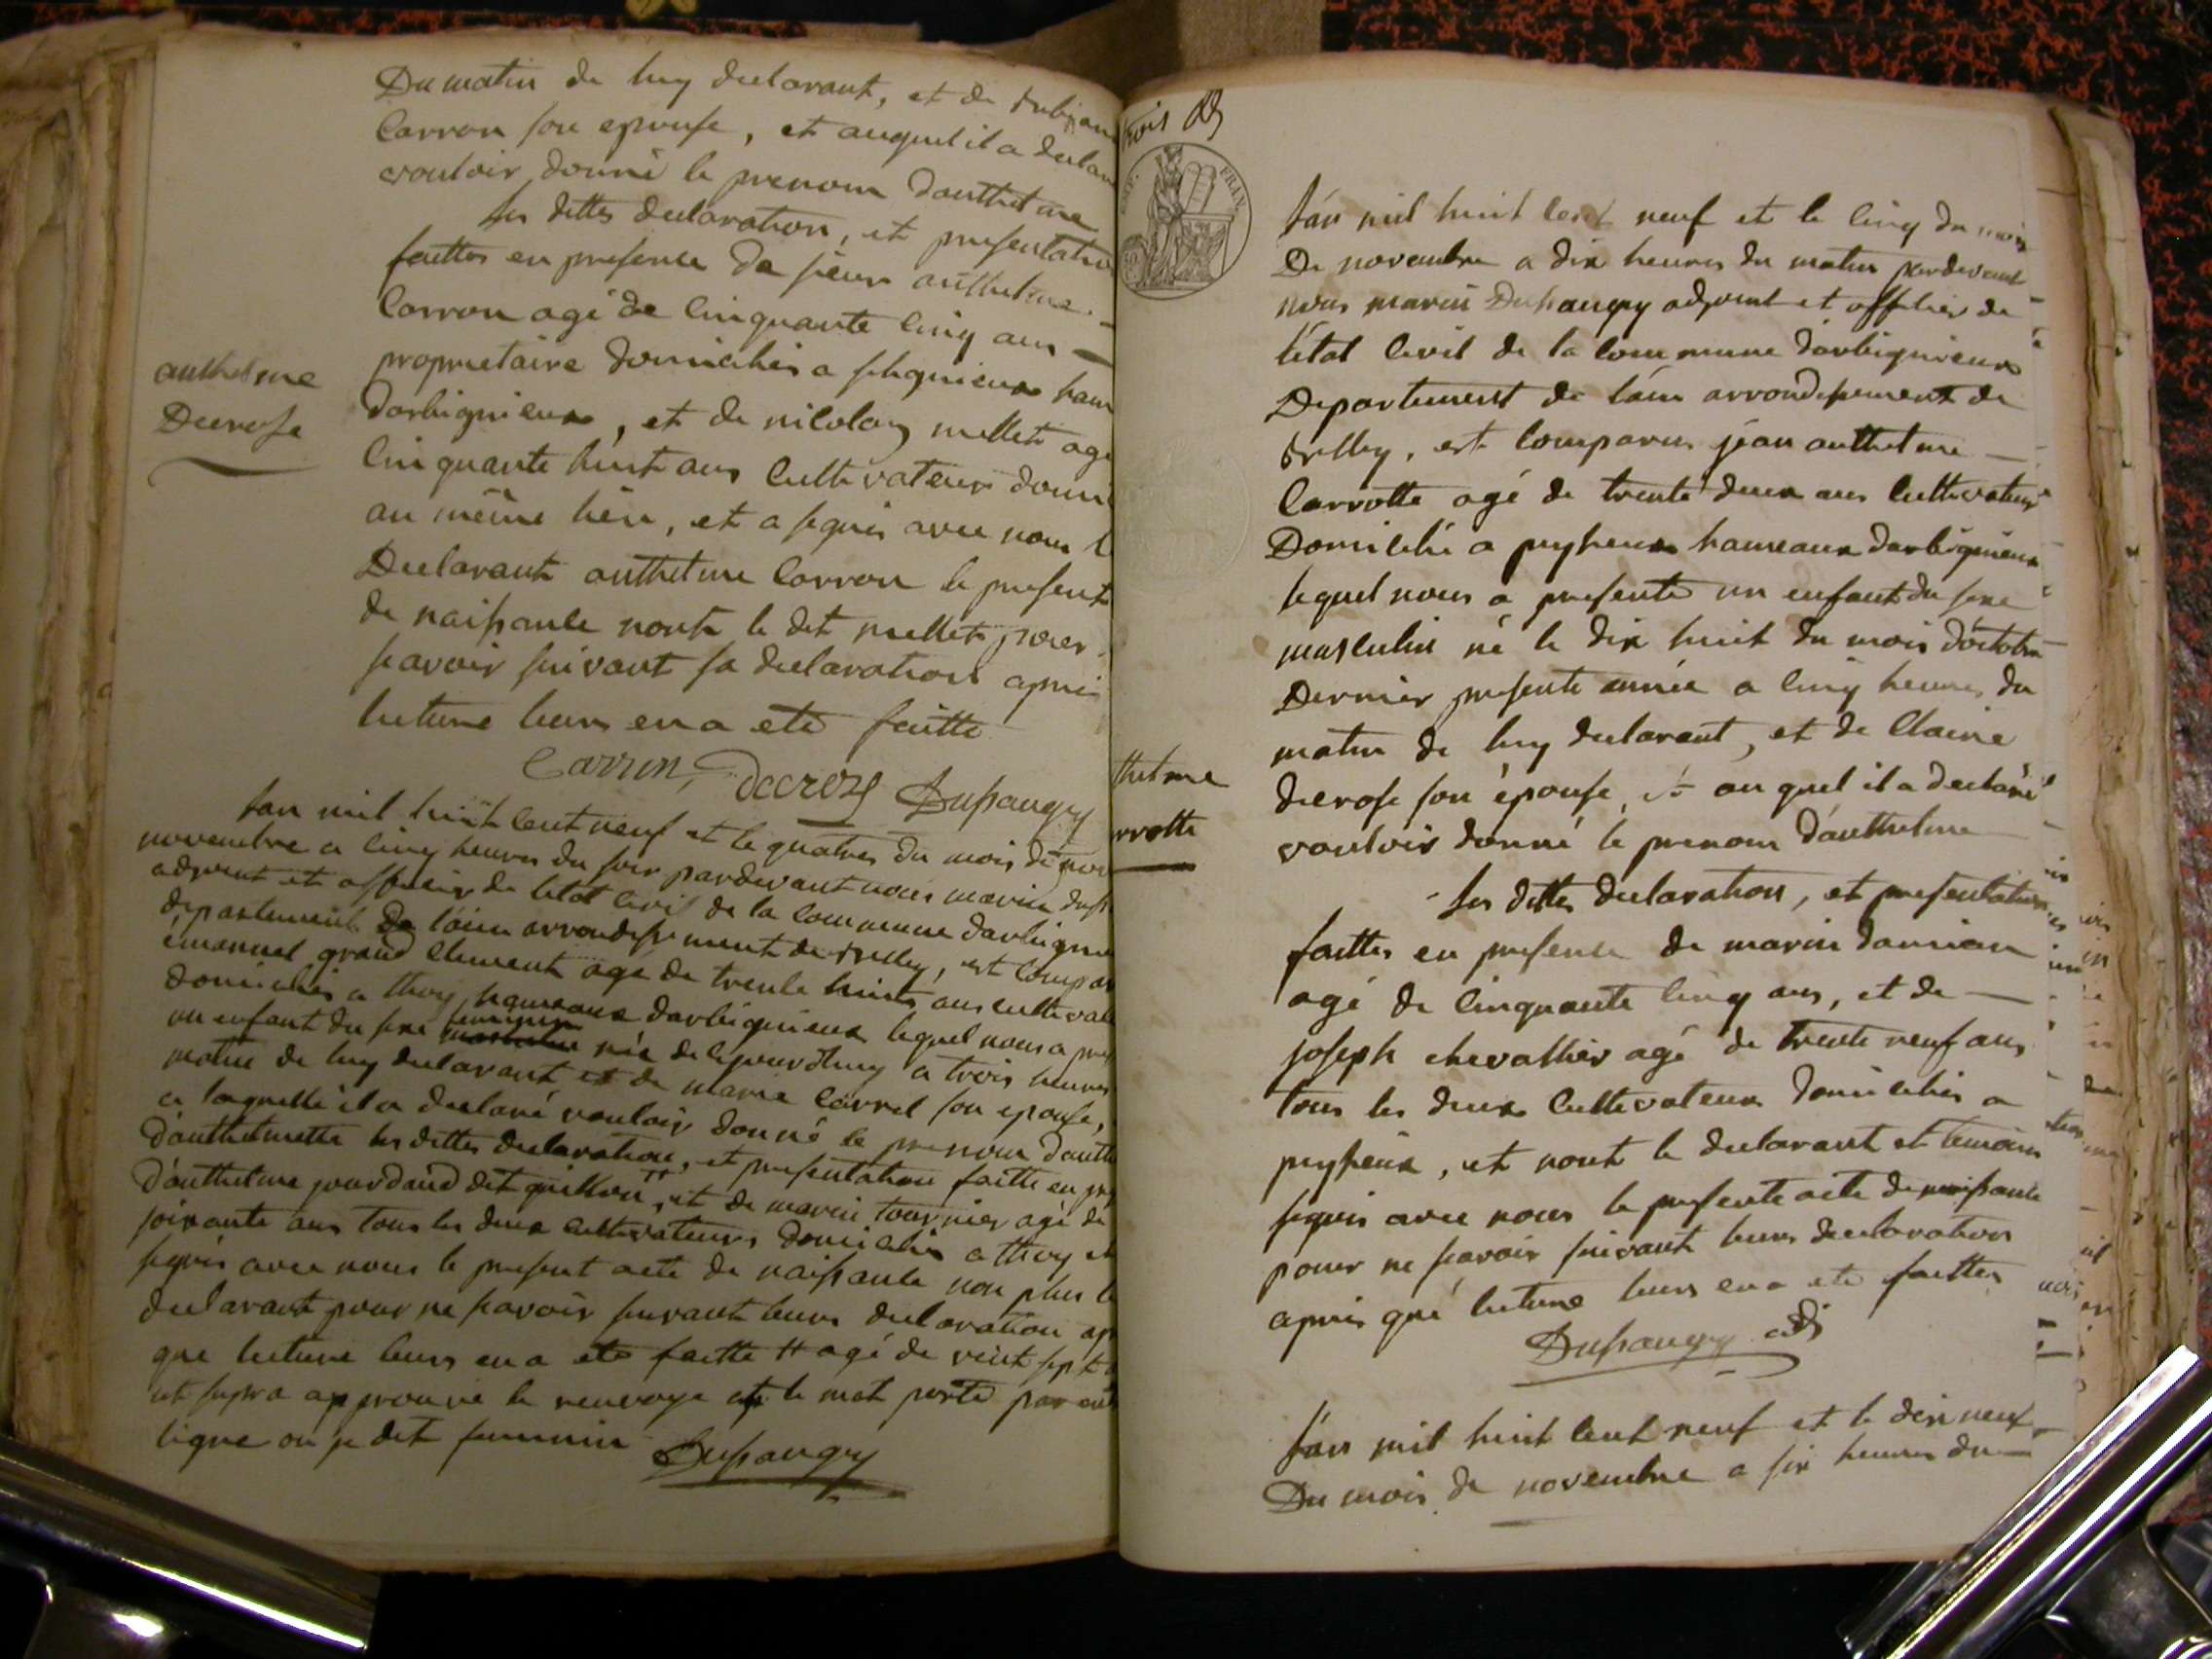 Du matin de luy declarant, et de
Carron son epouse, et auquel il a declar
vouloir donné le prenom danthelme
Les dittes declaration, et presentatio
faittes en presence de sieur anthelme
Carron agé de Cinquante Cinq ans
proprietaire domicilies a ham
darbignieux, et de nicolas mellet agé
Cinquante huit ans Cultivateur domi
au même lieu, et a signés avec nous l
Declarant anthelme Carron le present
de naissance nont le dit mellet pour
savoir suivant sa declaration aprés
lecture leurs en a eté faitte
anthelme
Decrose
Carron Decroze Dupaugey
Lan mil huit Cent neuf et le quatre du mois de nov
novembre a Cinq heures du soir pardevant nous marin
adjoint et officier de letat Civil de la Commune darbignie
departement de l'ain arrondissement de Belley, est Compar
emanuel grand Clement agé de trente huits ans cultivate
domicilies a thoy hameaux darbignieux lequel nous a pres
un enfant du sexe feminin née de le jourdhuy a trois heures
matin de luy declarant et de marie Carrel son epouse,
a laquelle il a declaré vouloir donné le prenom danthe
d'anthelmette les dittes declaration, et presentation faitte en pre
d'anthelme jourdand dit et de marin tournier agé de
soixante ans tous les deux cultivateurs domicilies a thoy et
signés avec nous le present acte de naissance non plus le
declarant pour ne savoir suivant leurs declaration apr
que lecture leurs en a eté faitte # agé de veint sept
ut supra approuvé le renvoye et le mot porté par ent
ligne ou je dit feminin
Dupaugey
trois
FRAN.
L'an mil huit Cent neuf et le Cinq du mois
De novembre a dix heures du matin pardevant
nous marin Dupaugey adjoint et officier de
l'état Civil de la Commune d'arbignieux
Departement de l'ain arrondissement de
Belley, est Comparus jean anthelme
Carrotte agé de trente deux ans Cultivateur
Domicilié a peyzieux hameaux darbignieux
lequel nous a presenté un enfant du sexe
masculin né le dix huit du mois d'octobre
Dernier presente année a Cinq heures du
matin de luy declarant, et de Claire
decrose son épouse, au quel il a declaré
vouloir donné le prenom d'anthelme
thelme
rrotte
Les dittes declaration, et presentation
faittes en presence de marin damian
agé de Cinquante Cinq ans, et de
joseph chevallier agé de trente neuf ans
tous les deux Cultivateurs domicilies a
peyzieux, et nont le declarant et temoins
signés avec nous le presente acte de naissance
pour ne savoir suivant leurs declaration
aprés que lecture leurs en a eté faittes
Dupaugey adj
L'an mil huit Cent neuf et le dix neuf
Du mois de novembre a six heures du